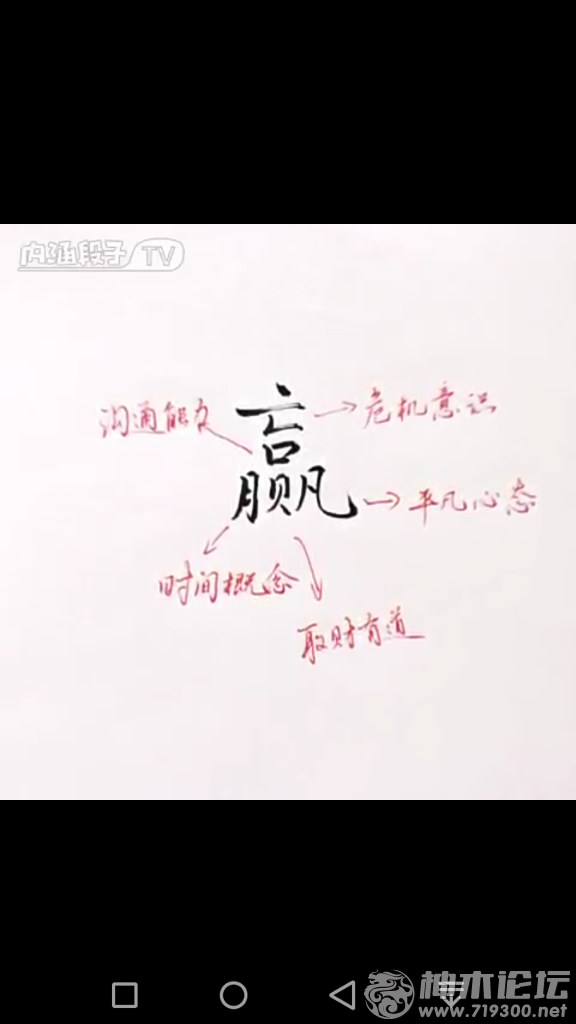 内涵段子TV
沟通能力
赢
危机意识
平凡心态
时间概念
取财有道
神木论坛
www.719300.net